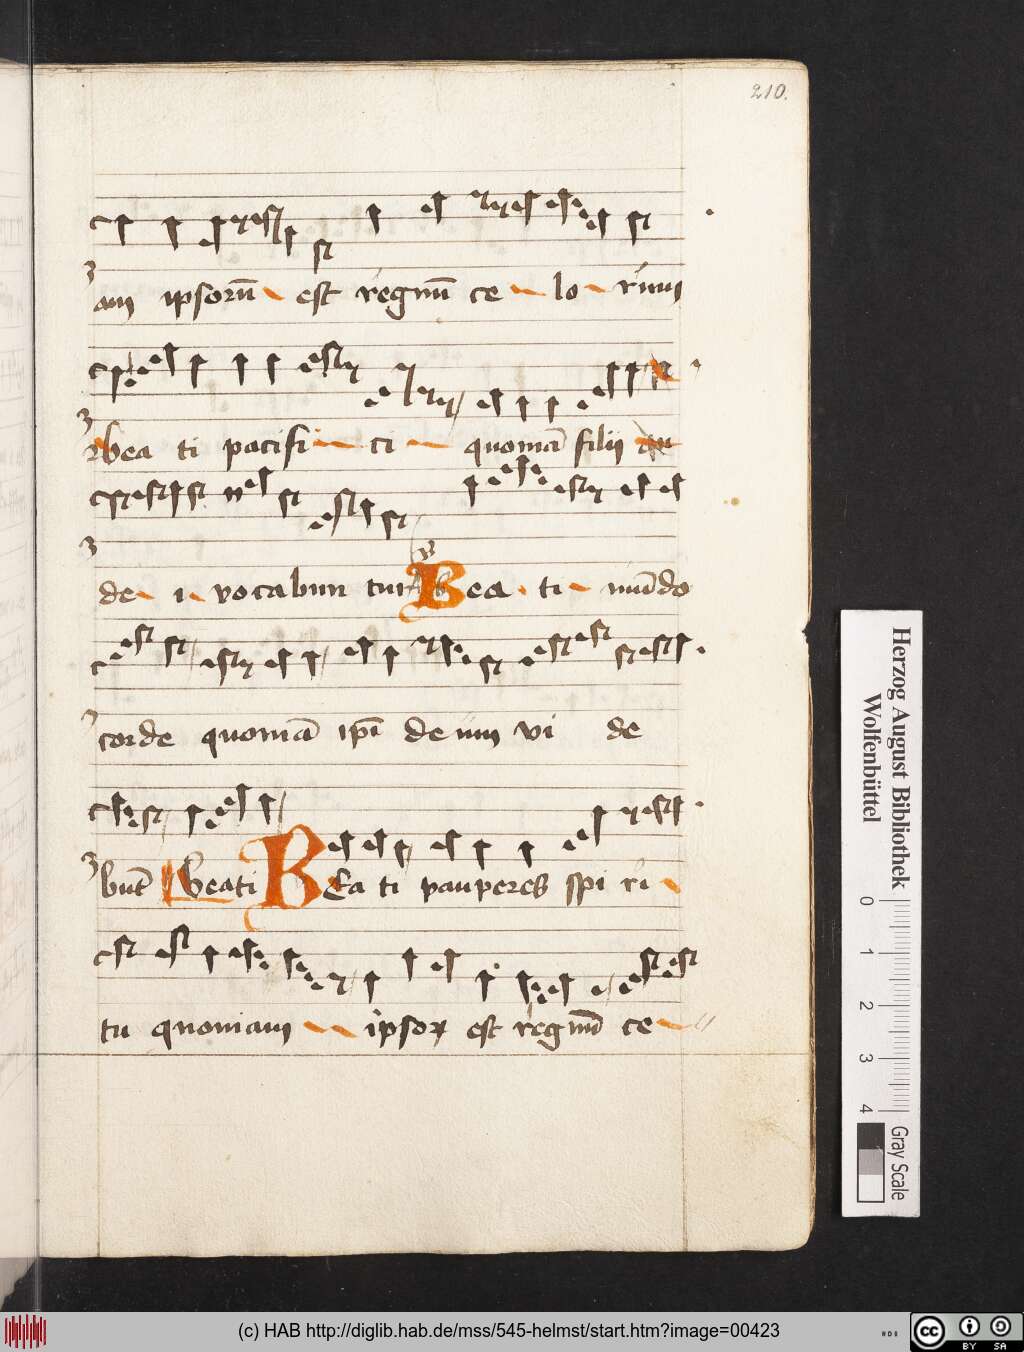 210.
am ipsorū est regnū ce lo rum
bea ti pacifi ci quoniā filij
de i vocabun tur Bea ti mūdo
corde quoniā ipī deum vi de
būt Beati BEa ti pauperes spi ri
tu quoniam ipsoꝝ est regnū ce
Herzog August Bibliothek
Wolfenbüttel
0 1 2 3 4
Gray Scale
(c) HAB http://diglib.hab.de/mss/545-helmst/start.htm?image=00423
cc BY SA